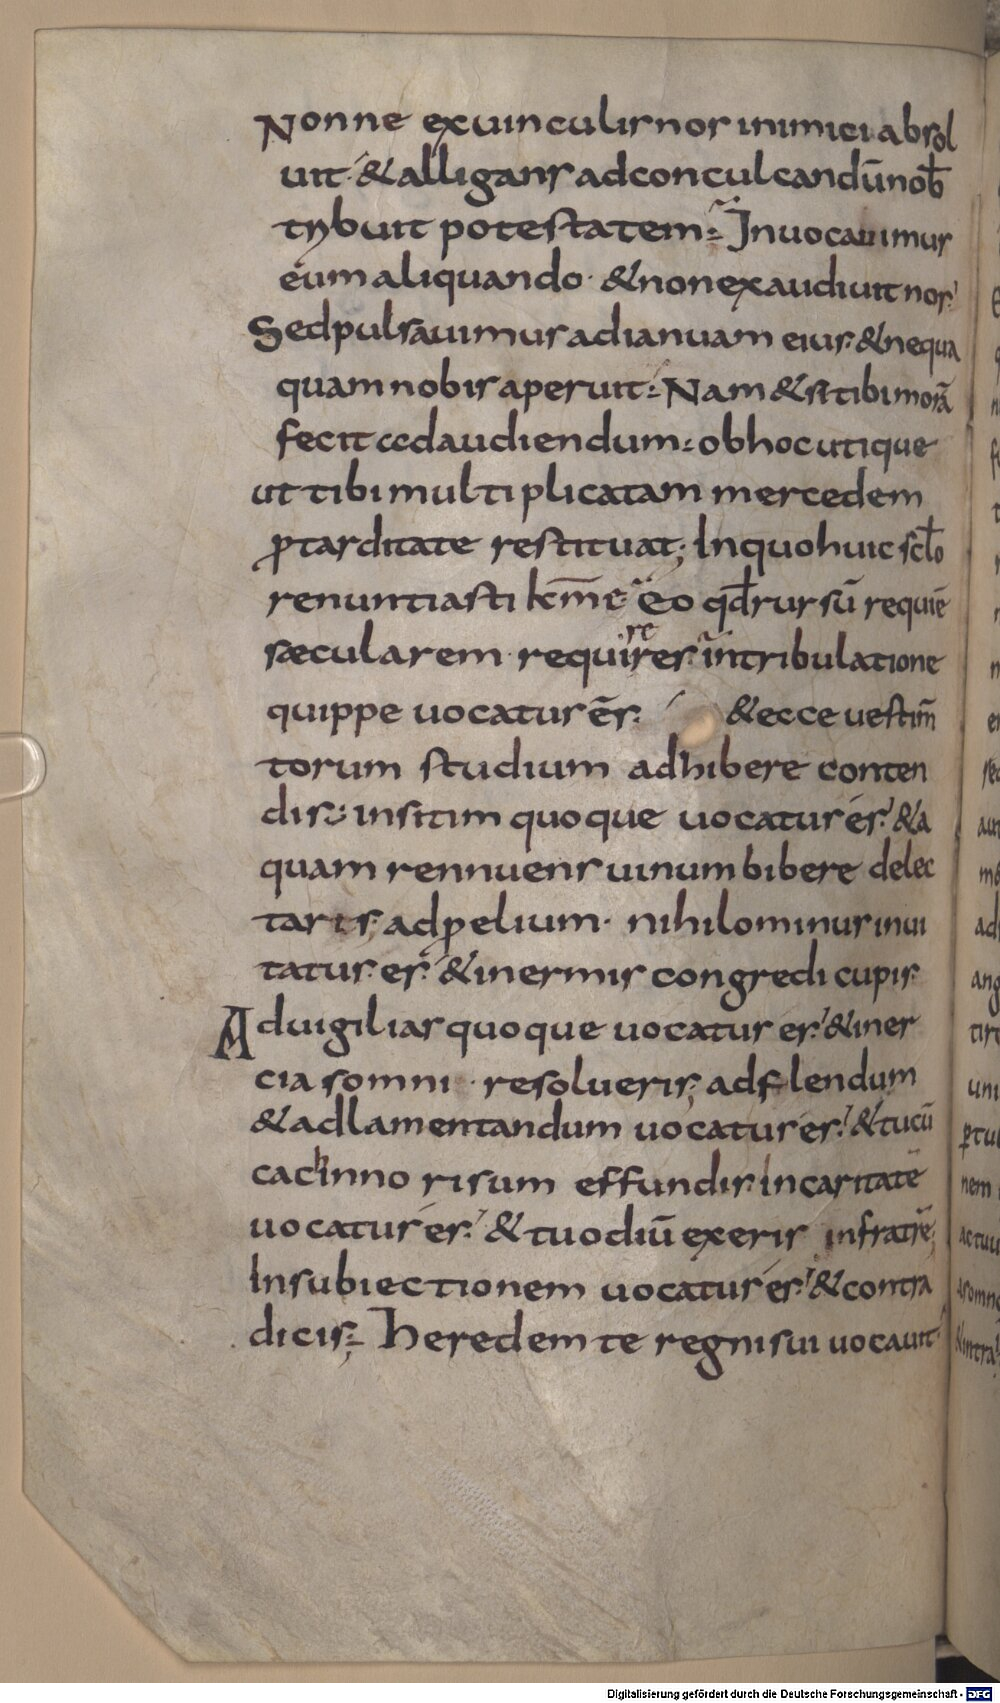 Nonne exuinculis nos inimici absol
uit· & alligans adconculcandū nob̄
trybuit potestatem: Inuocauimus
eum aliquando· & nonexaudiuit nos·
Sed pulsauimus adianuam eius· & nequa
quam nobis aperuit: Nam & si tibi morā
fecit adaudiendum: obhoc utique
ut tibi multiplicatam mercedem
ꝓtarditate restituat; In quo huic scło
renuntiasti km̄e· Eo qđ rursū requiē
sæcularem requireres· intribulatione
quippe uocatus ēs· & ecce uestim̄
torum studium adhibere conten
dis: insitim quoque uocatus és· & a
quam rennuens uinum bibere delec
taris· adp̱elium· nihilominus inui
tatus es· & inermis congredi cupis·
Aduigilias quoque uocatus es· & iner
cia somni· resolueris; adflendum
& adlamentandum uocatus és· & tu cū
cachinno risum effundis· Incaritatē
uocatus és· & tu odiū exeris infratrē;
Insubiectionem uocatus és· & contra
dicis; Heredem te regni sui uocauit·
Digitalisierung gefördert durch die Deutsche Forschungsgemeinschaft - DFG